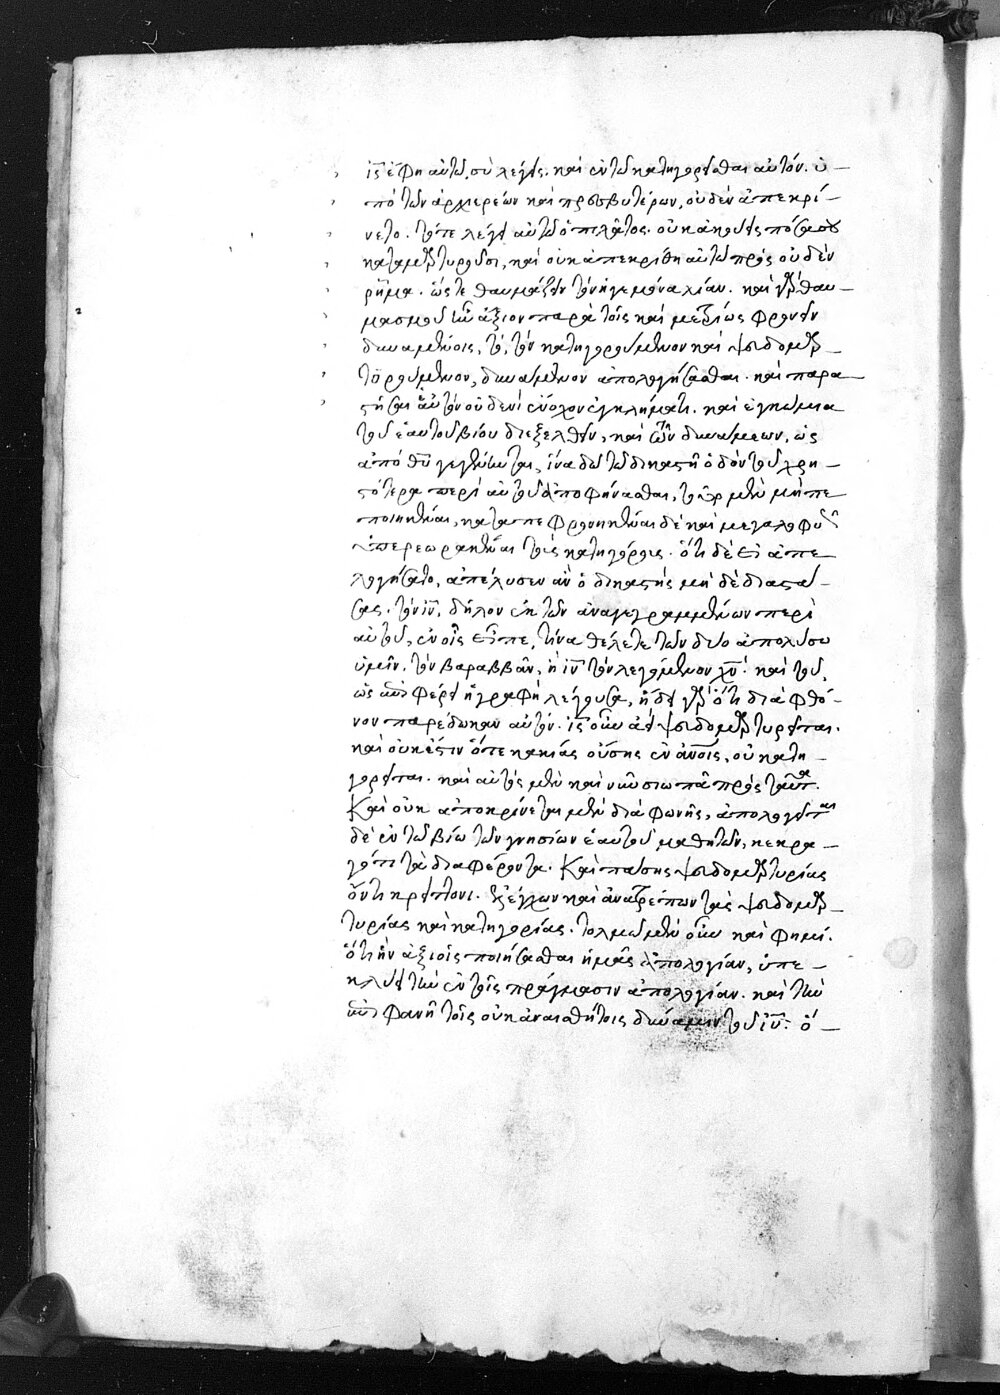 ις ἔφη αὐτῶ, σὺ λέγεις. καὶ ἐν τῶ κατηγορεῖσθαι αὐτόν. ὑ –
πὸ τῶν ἀρχιερέων καὶ πρεσβυτέρων, οὐδὲν ἀπεκρί –
νετο. τότε λέγει αὐτῶ ὁ πιλᾶτος. οὐκ ἀκούεις πόσα σου
καταμαρτυροῦσι, καὶ οὐκ ἀπεκρίθη αὐτῶ πρὸς οὐδὲν
ρῆμα. ὥστε θαυμάζειν τὸν ἡγεμόνα λίαν. καὶ γὰρ θαυ –
μασμοῦ ἦν ἄξιον παρὰ τοῖς καὶ μετρίως φρονεῖν
δυναμένοις, τὸ, τὸν κατηγορούμενον καὶ ψευδομαρ –
τυρούμενον, δυνάμενον ἀπολογήσασθαι. καὶ παρα –
στῆσαι αὐτὸν οὐδενὶ ἔνοχον ἐγκλήματι. καὶ ἐγκώμια
τοῦ ἑαυτοῦ βίου διεξελθεῖν, καὶ τῶν δυνάμεων, ὡς
ἀπὸ θυ γεγένηνται, ἵνα δῶ τῶ δικαστῆ ὁδὸν τοῦ χρη –
στότερα περὶ αὐτοῦ ἀποφήνασθαι, τοῦτο μὲν μὴ πε –
ποιηκέναι, καταπεφρονηκέναι δὲ καὶ μεγαλοφυῶς
ὑπερεωρακέναι τοὺς κατηγόρους. ὅτι δὲ εἰ ἀπε –
λογήσατο, ἀπέλυσεν ἂν ὁ δικαστὴς μηδὲ διστά –
σας. τὸν ιν, δῆλον ἐκ τῶν ἀναγεγραμμένων περὶ
αὐτοῦ, ἐν οἷς εἶπε, τίνα θέλετε τῶν δύο ἀπολύσω
ὑμῖν. τὸν βαραββᾶν, ἢ ιν τὸν λεγόμενον χν. καὶ τοῦ,
ὡς ἐπιφέρει ἡ γραφὴ λέγουσα, ἤδει γὰρ ὅτι διὰ φθό –
νον παρέδωκαν αὐτόν. ις οὖν ἀεὶ ψευδομαρτυρεῖται.
καὶ οὐκ ἔστιν ὅτε κακίας οὔσης ἐν ἀνοις, οὐ κατη –
γορεῖται. καὶ αὐτὸς μὲν καὶ νῦν σιωπᾶ πρὸς ταῦτα.
Καὶ οὐκ ἀποκρίνεται μὲν διὰ φωνῆς, ἀπολογεῖται
δὲ ἐν τῶ βίω τῶν γνησίων ἑαυτοῦ μαθητῶν, κεκρα –
γότι τὰ διαφέροντα. Καὶ πάσης ψευδομαρτυρίας
ὄντι κρείττονι. ἐξελέγχων καὶ ἀνατρέπων τὰς ψευδομαρ –
τυρίας καὶ κατηγορίας. τολμῶ μὲν οὖν καὶ φημί.
ὅτι ἣν ἀξιοῖς ποιήσασθαι ἡμᾶς ἀπολογίαν, ὑπε –
κλύει τὴν ἐν τοῖς πράγμασιν ἀπολογίαν. καὶ τὴν
ἐπιφανῆ τοῖς οὐκ ἀναισθήτοις δύναμιν τοῦ ιυ. ὁ –